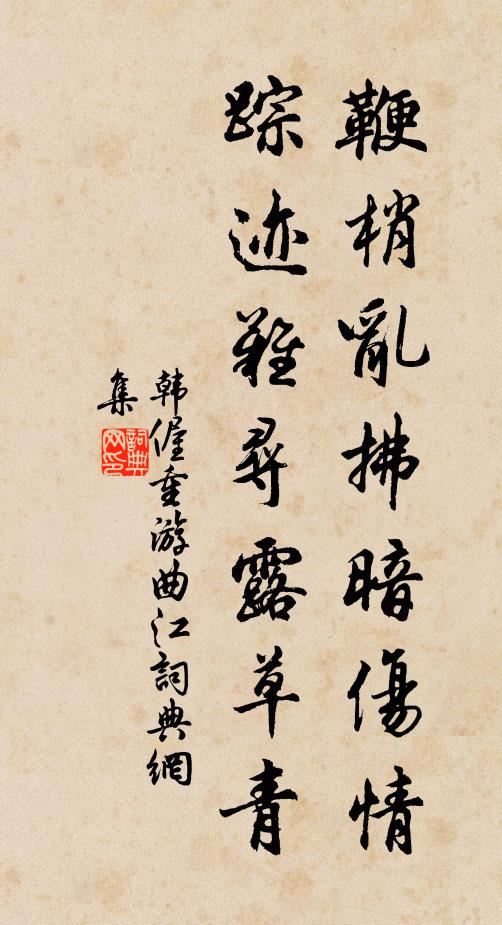 鞭梢亂拂暗傷情
踪迹難尋露草青
韩偓重游曲江詞典網
集
詞典
网印